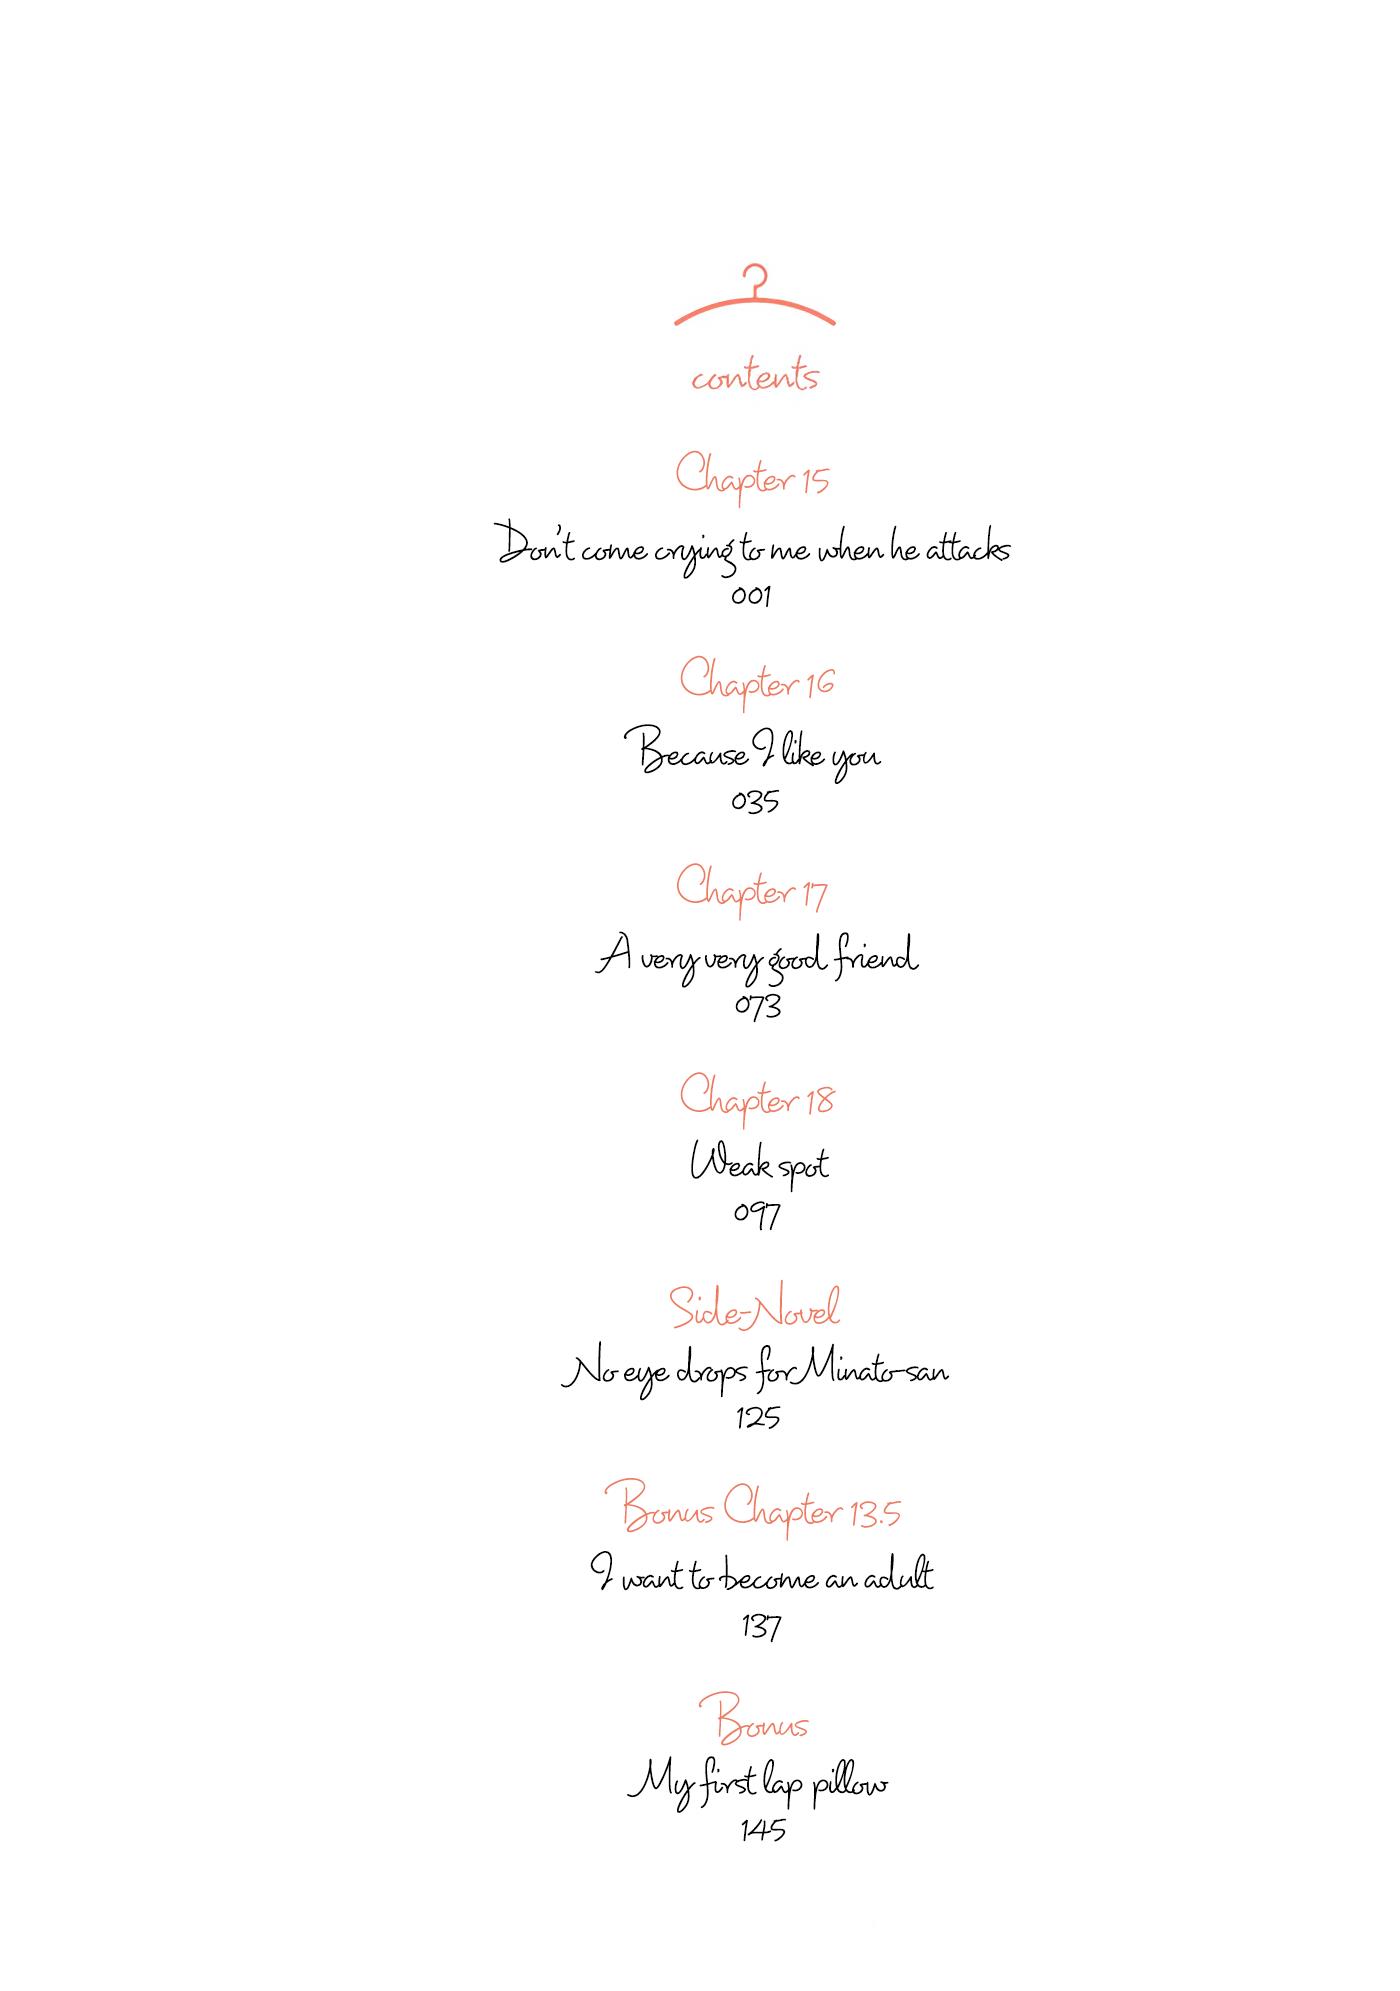 contents
Chapter 15
Don't come crying to me when he attacks
001
Chapter 16
Because I like you
035
Chapter 17
A very very good friend
073
Chapter 18
Weak spot
097
Side-Novel
No eye drops for Minato-san
125
Bonus Chapter 13.5
I want to become an adult
137
Bonus
My first lap pillow
145